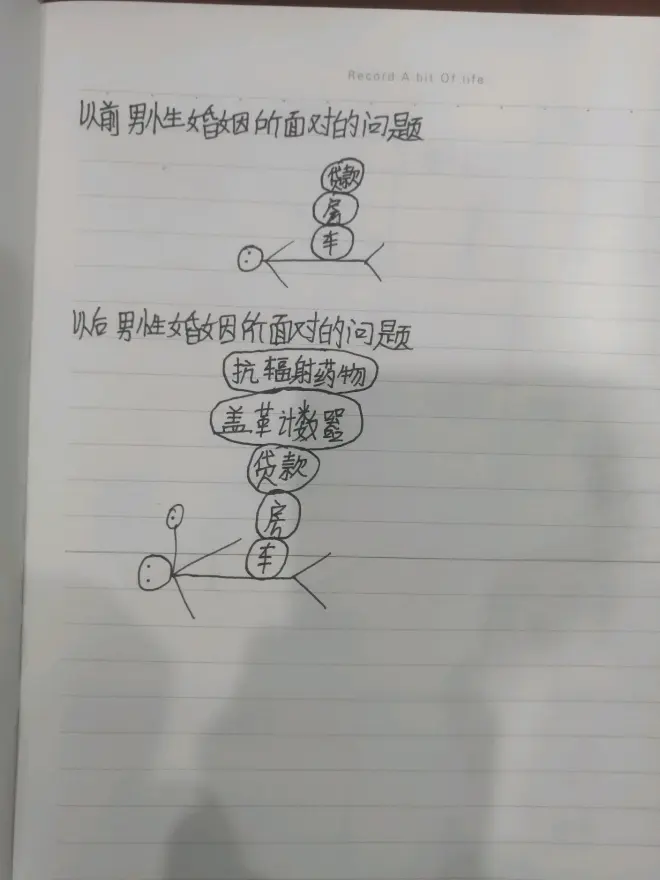 Record A bit Of life
以前男性生婚姻因所面对的问题
贷款
房
车
以后男性婚姻因所面对的问题
抗辐射药物
盖革计数器
贷款
房
车